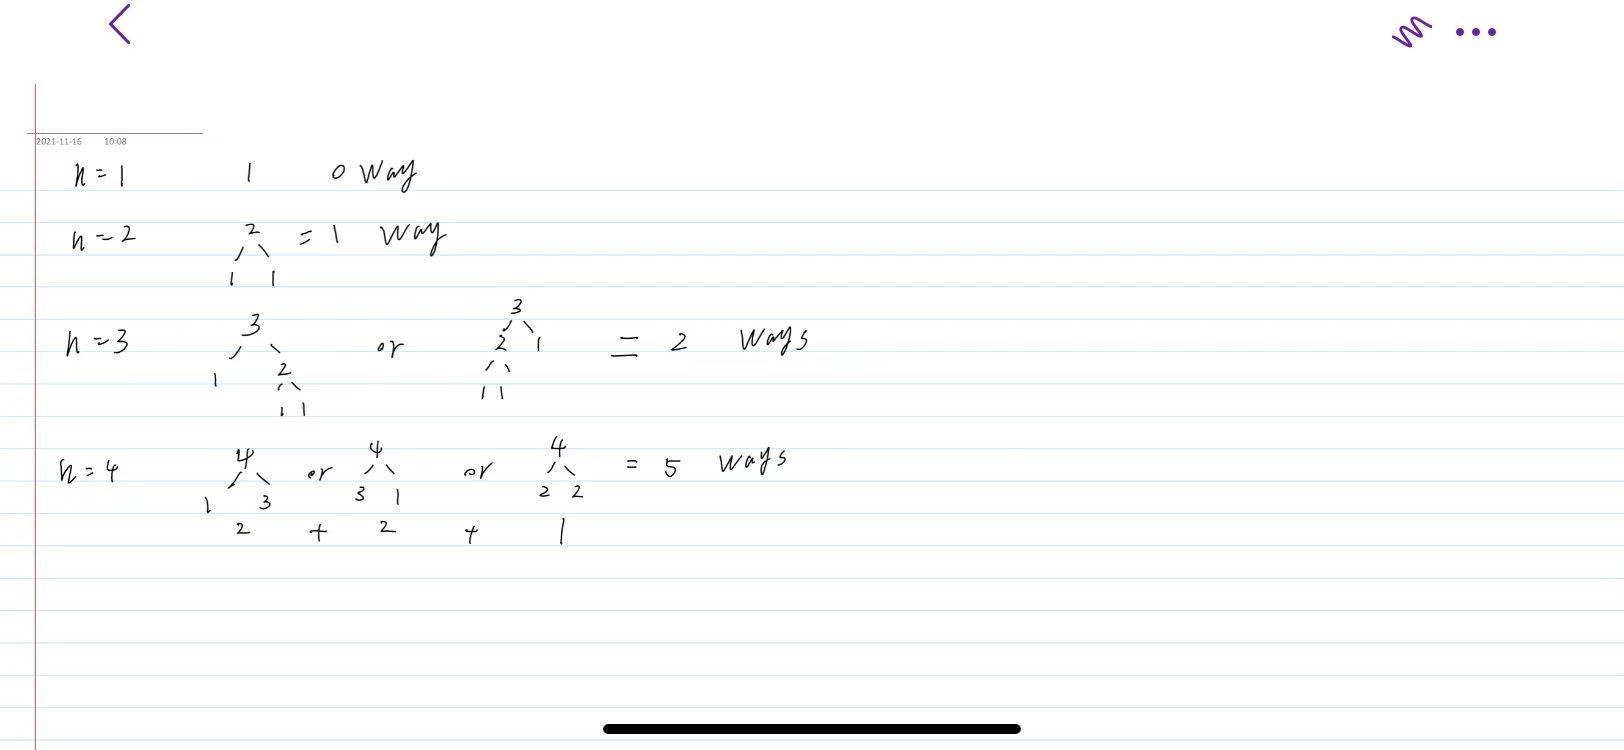 2021-11-16 10:08
n=1 1 0 way
n=2 2 = 1 way
1 1
3
n=3 3 or 2 1 = 2 ways
1 2 1 1
1 1
n=4 4 or 4 or 4 = 5 ways
1 3 3 1 2 2
2 + 2 + 1